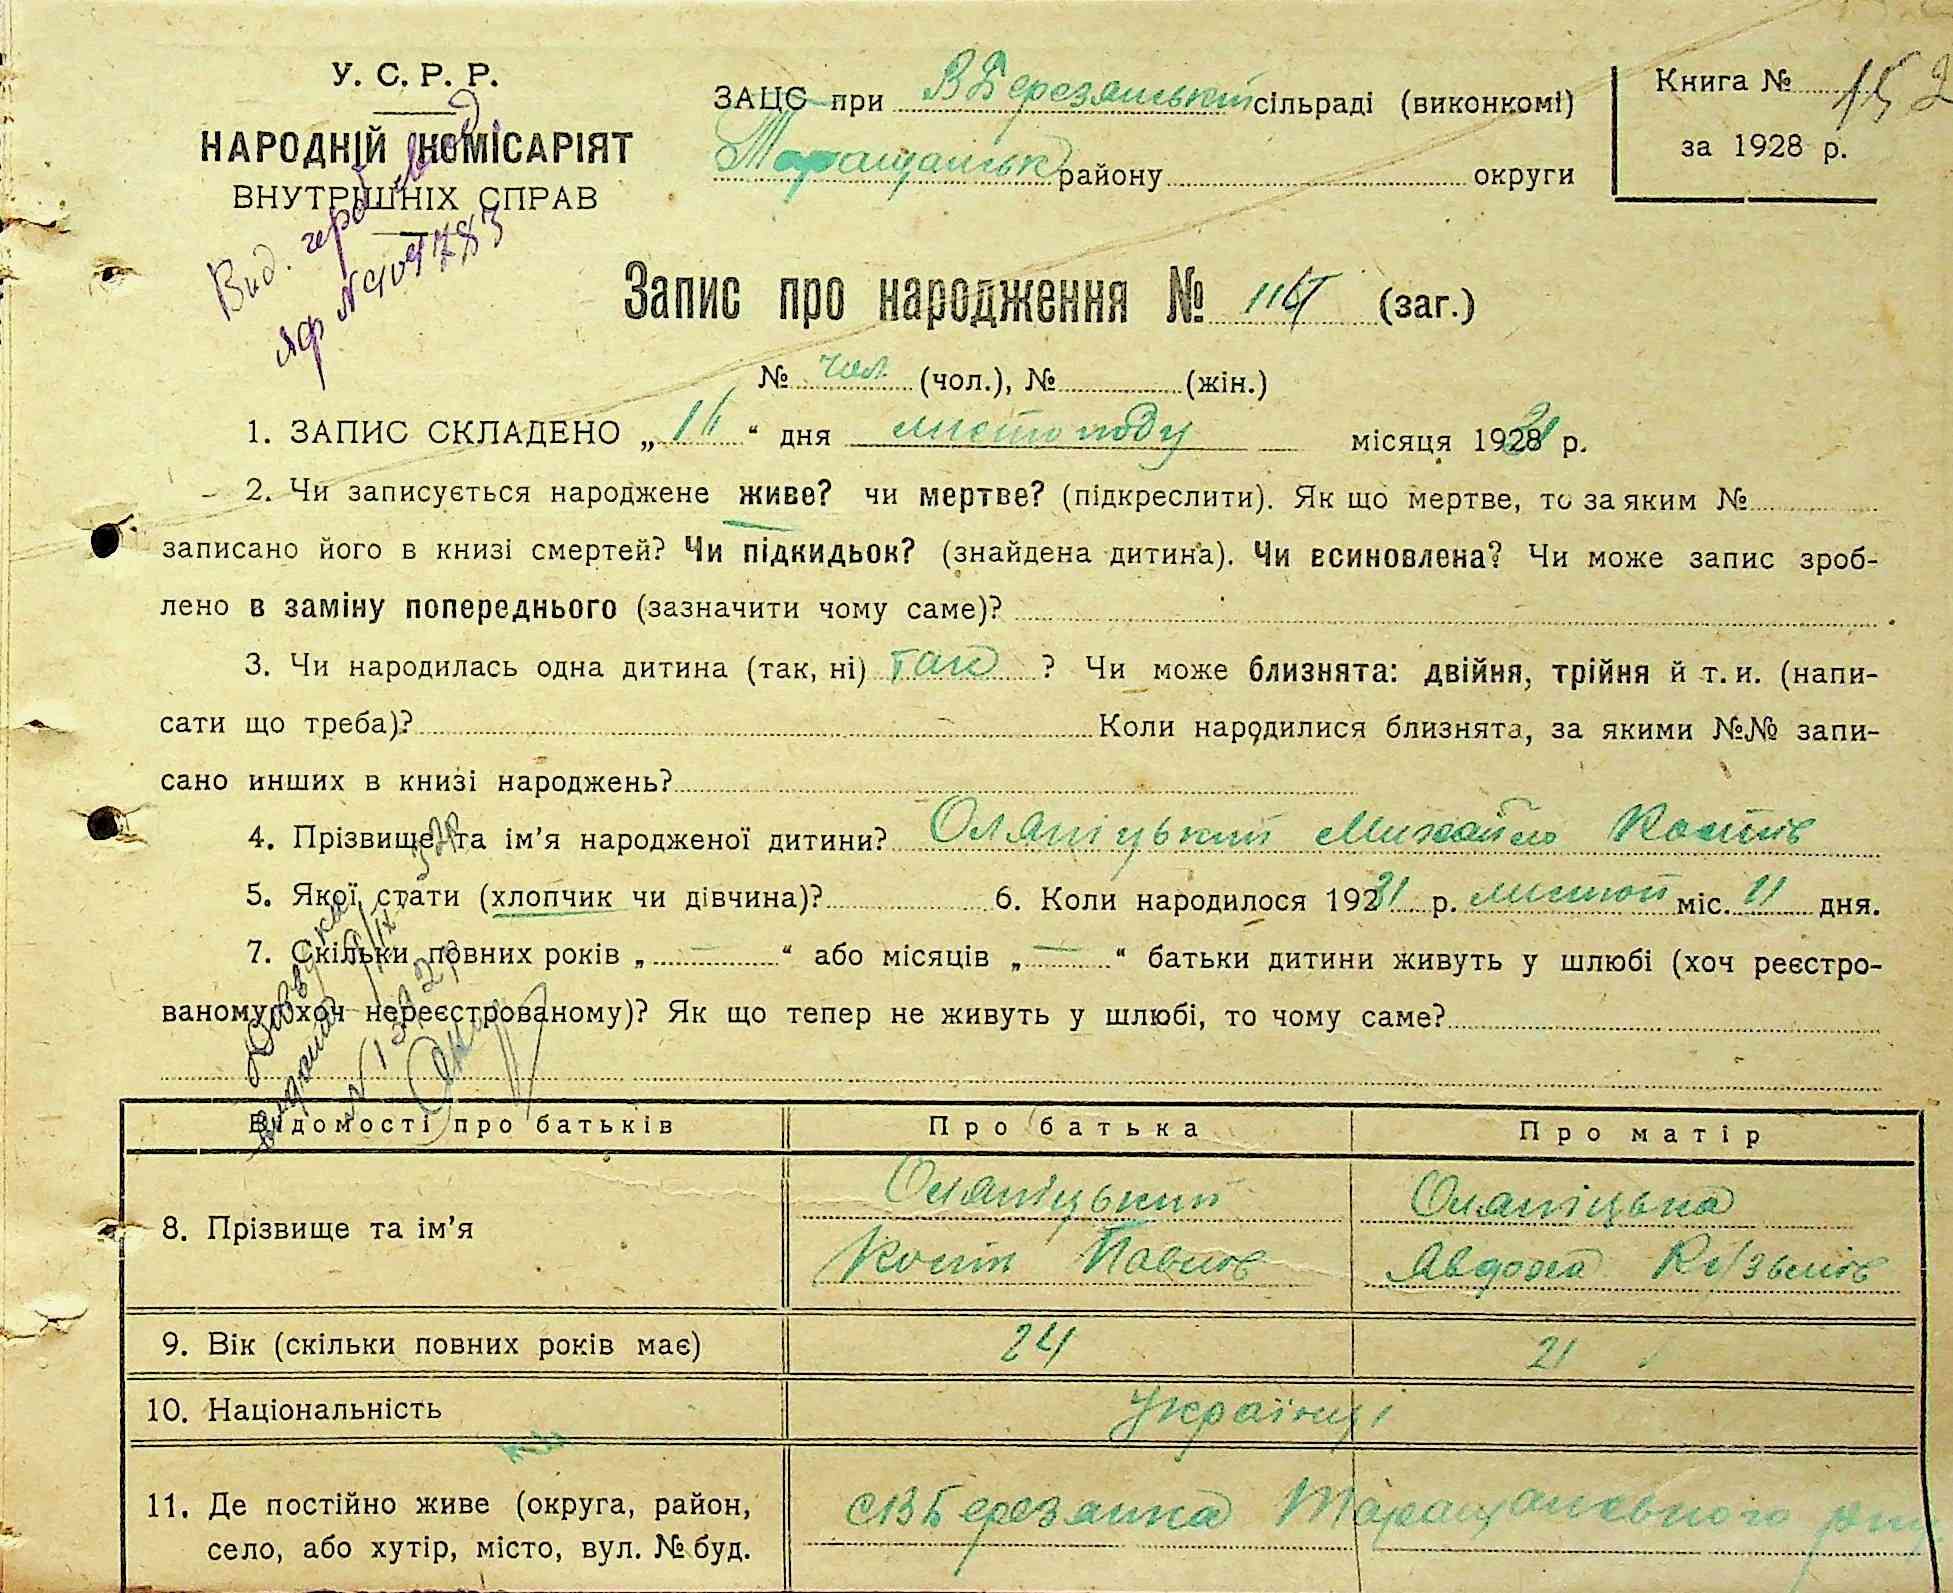 У. С. Р. Р.
НАРОДНІЙ КОМІСАРІЯТ
ВНУТРІШНІХ СПРАВ
ЗАЦС при ВБерезянській сільраді (виконкомі)
Таращанськ району округи
Книга № 152
за 1928 р.
Вид.
№ 409783
Запис про народження № 116 (заг.)
№ чол (чол.), № (жін.)
1. ЗАПИС СКЛАДЕНО „ 16 “ дня листопаду місяця 1928 р.
2. Чи записується народжене живе? чи мертве? (підкреслити). Як що мертве, то за яким №
записано його в книзі смертей? Чи підкидьок? (знайдена дитина). Чи всиновлена? Чи може запис зроб-
лено в заміну попереднього (зазначити чому саме)?
3. Чи народилась одна дитина (так, ні) так ? Чи може близнята: двійня, трійня й т. и. (напи-
сати що треба)? Коли народилися близнята, за якими №№ запи-
сано инших в книзі народжень?
4. Прізвище та ім’я народженої дитини? Оляніцький Михайло Костів
5. Якої стати (хлопчик чи дівчина)? 6. Коли народилося 1931 р. листоп міс. 11 дня.
7. Скільки повних років „ — “ або місяців „ — “ батьки дитини живуть у шлюбі (хоч реєстро-
ваному, хоч нереєстрованому)? Як що тепер не живуть у шлюбі, то чому саме?
Відомості про батьків Про батька Про матір
8. Прізвище та ім’я Оляніцький Оляніцька
Кость Павлов Явдоха Кузьмів
9. Вік (скільки повних років має) 24 21
10. Національність Українці
11. Де постійно живе (округа, район, с ВБерезанка Таращанського
село, або хутір, місто, вул. № буд.